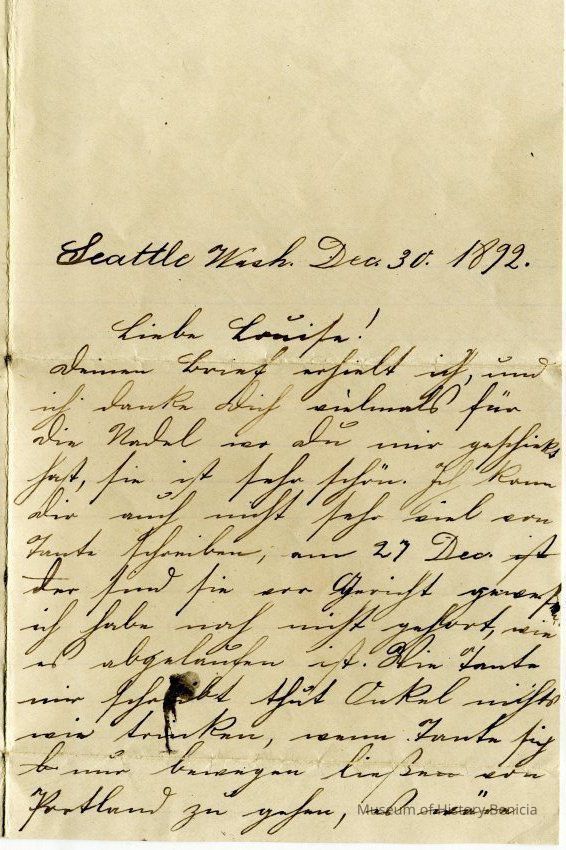 Seattle Wash. Dec. 30. 1892.
Liebe Louise!
Deinen Brief erhielt ich, und
ich danke Dich vielmals für
die Nadel wo Du mir geschickt
hast, sie ist sehr schön. Ich kann
Dir auch nicht sehr viel von
Tante schreiben, am 27 Dec. ist
der sind sie vor Gericht gewesen
ich habe noch nicht gehört, wie
es abgelaufen ist. Wie Tante
mir schreibt thut Onkel nichts
wie trinken, wenn Tante sich
nur bewegen ließen von
Portland zu gehen,
Museum of History Benicia